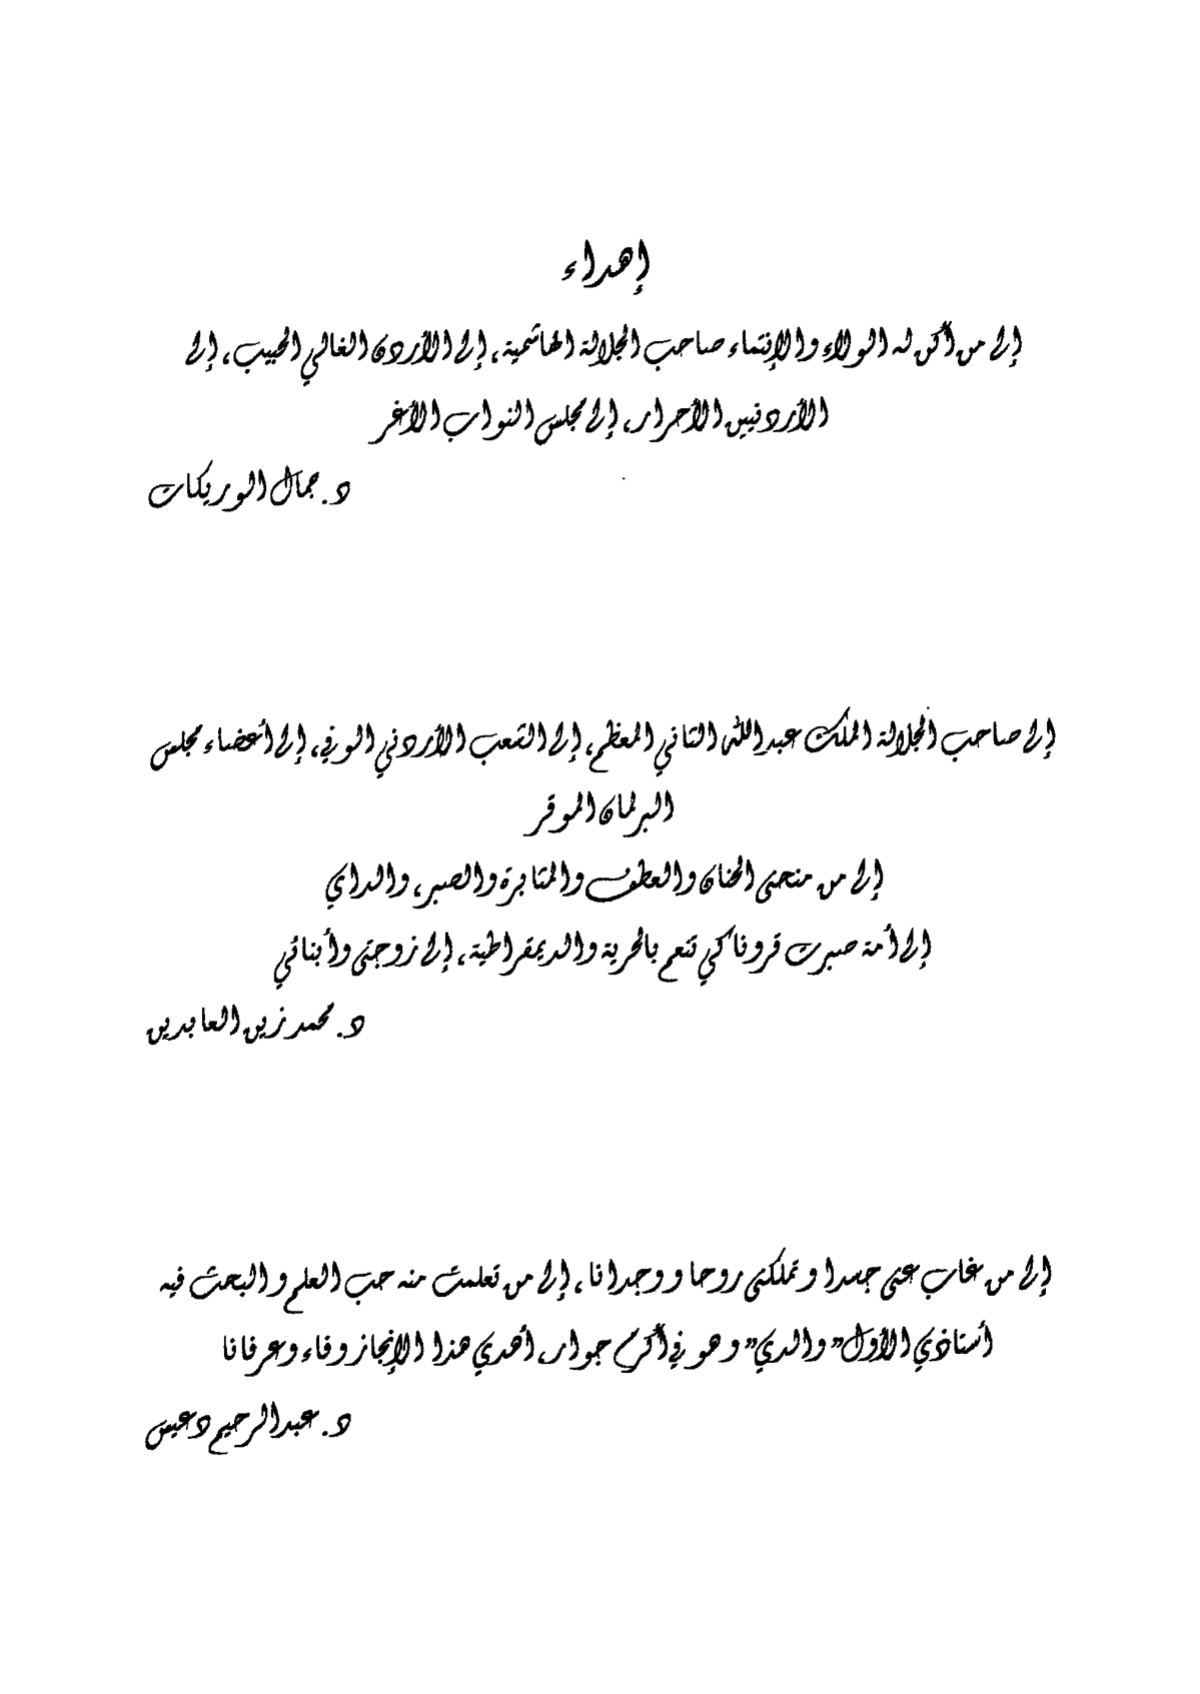 إهداء
إلى من أكن له الولاء والإنتماء صاحب الجلالة الهاشمية، إلى الأردن الغالي الحبيب، إلى
الأردنيين الأحرار، إلى مجلس النواب الأغر
د. جمال الوريكات
إلى صاحب الجلالة الملك عبدالله الثاني المعظم، إلى الشعب الأردني الوفي، إلى أعضاء مجلس
البرلمان الموقر
إلى من منحني الحنان والعطف والمثابرة والصبر، والداي
إلى أمة صبرت قرونا كي تنعم بالحرية والديمقراطية، إلى زوجتي وأبنائي
د. محمد زين العابدين
إلى من غاب عني جسدا وتملكني روحا ووجدانا، إلى من تعلمت منه حب العلم والبحث فيه
أستاذي الأول" والدي" وهو في أكرم جوار، أهدي هذا الإنجاز وفاء وعرفانا
د. عبدالرحيم دعيس